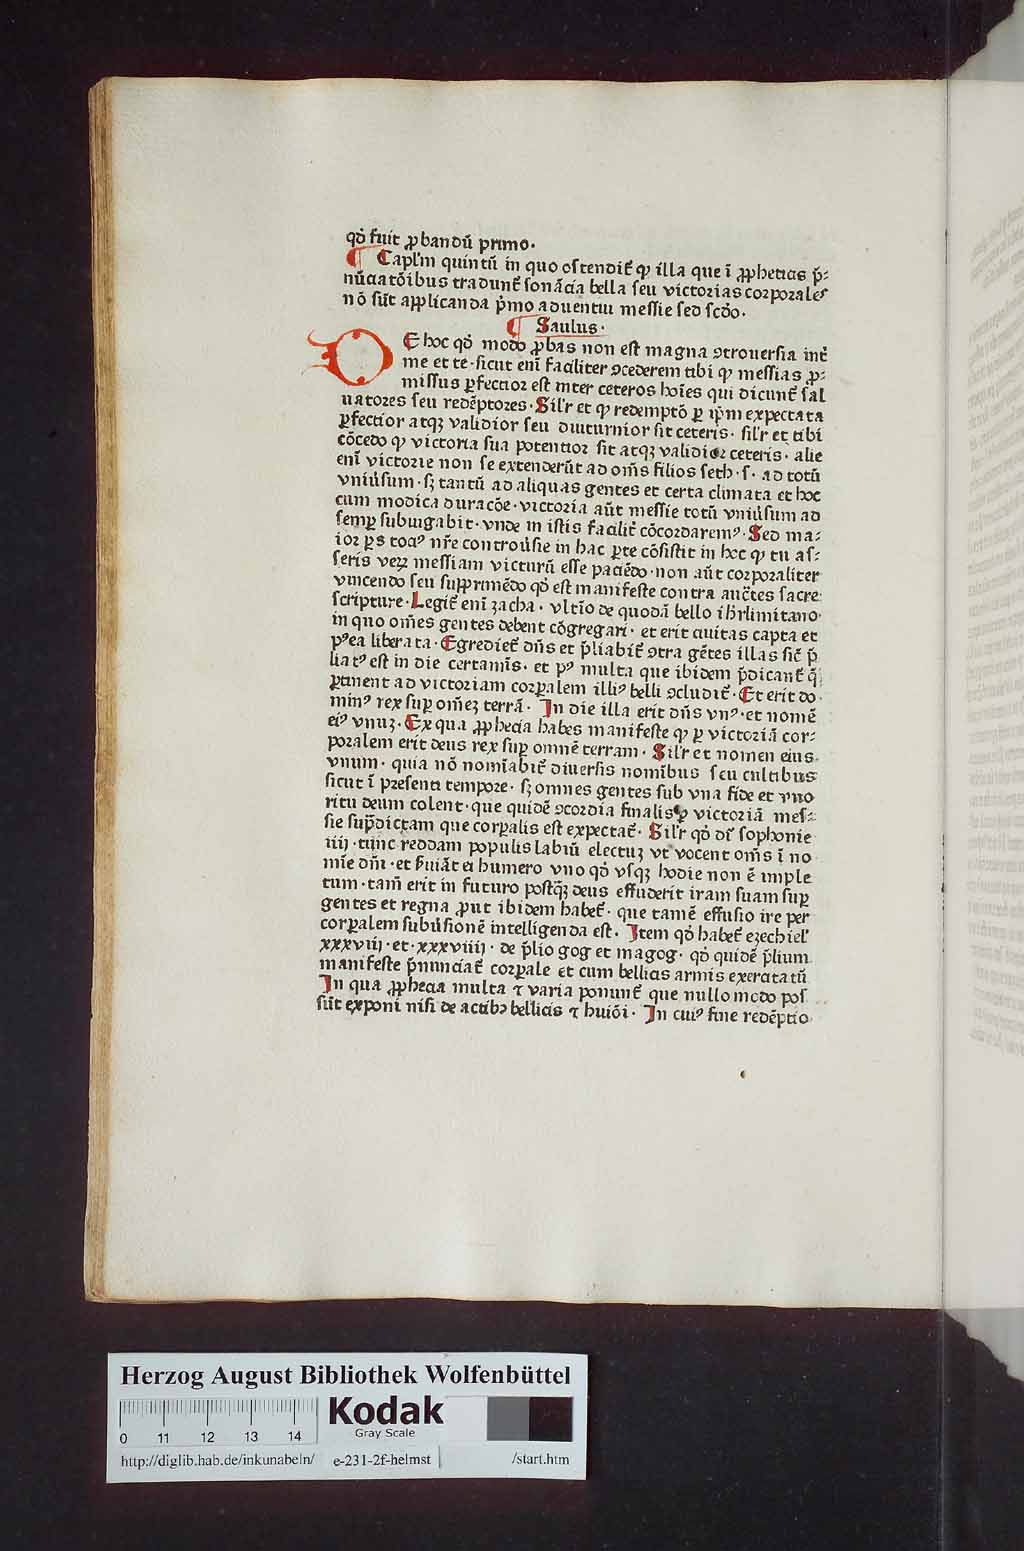 qd̄ fuit ꝓbandū primo.
¶ Capl'm quintū in quo ostendit᷑ ꝙ illa que ī ꝓphetias p̄-
nūciatōibus tradunt᷑ sonācia bella seu victorias corporales
nō sūt applicanda p̄mo aduentui messie sed scd̄o.
¶ Saulus.
DE hoc qd̄ modo ꝓbas non est magna ꝯtrouersia int᷑
me et te. sicut enī faciliter ꝯcederem tibi ꝙ messias ꝓ-
missus ꝑfectior est inter ceteros hoīes qui dicunt᷑ sal
uatores seu redēptores. Sil'r et ꝙ redemptō ꝑ ip̄m expectata
ꝑfectior atqꝫ validior seu diuturnior sit ceteris. sil'r et tibi
cōcedo ꝙ victoria sua potentior sit atqꝫ validior ceteris. alie
enī victorie non se extenderūt ad om̄s filios seth. s. ad totū
vniūsum. sꝫ tantū ad aliquas gentes et certa climata et hoc
cum modica duracōe. victoria aūt messie totū vniūsum ad
semꝑ subiugabit. vnde in istis facilit᷑ cōcordaremꝰ. Sed ma-
ior ꝑs tociꝰ nr̄e controūsie in hac ꝑte cōsistit in hoc ꝙ tu as-
seris veꝝ messiam victurū esse paciēdo. non aūt corporaliter
vincendo seu supprimēdo qd̄ est manifeste contra auct̄es sacre
scripture. Legit᷑ enī zacha. vltīo de quodā bello ihrl̄imitano.
in quo om̄es gentes debent cōgregari. et erit ciuitas capta et
pꝰea liberata. Egrediet᷑ dn̄s et p̄liabit᷑ ꝯtra gētes illas sic̄ p̄
liatꝰ est in die certamīs. et pꝰ multa que ibidem p̄dicant᷑ q̄
ꝑtinent ad victoriam corꝑalem illiꝰ belli ꝯcludit᷑. Et erit do
minꝰ rex suꝑ om̄eꝫ terrā. In die illa erit dn̄s vnꝰ. et nomē
eiꝰ vnuꝫ. Ex qua ꝓphecia habes manifeste ꝙ ꝑ victoriā cor-
poralem erit deus rex suꝑ omnē terram. Sil'r et nomen eius
vnum. quia nō nomīabit᷑ diuersis nomībus seu cultibus
sicut ī presenti tempore. sꝫ omnes gentes sub vna fide et vno
ritu deum colent. que quidē ꝯcordia finalis ꝑ victoriā mes-
sie sup̄dictam que corꝑalis est expectat᷑. Sil'r qd̄ dr̄ sophonie
iiij. tunc reddam populis labiū electuꝫ vt vocent om̄s ī no
mīe dn̄i. et s̄uiāt ei humero vno qd̄ vsqꝫ hodie non ē imple
tum. tam̄ erit in futuro postq̄ꝫ deus effuderit iram suam suꝑ
gentes et regna ꝓut ibidem habet᷑. que tamē effusio ire per
corꝑalem subūsionē intelligenda est. Item qd̄ habet᷑ ezechiel'
xxxviij. et. xxxviiij. de p̄lio gog et magog. qd̄ quidē p̄lium
manifeste p̄nunciat᷑ corꝑale et cum bellicis armis exercitatū
In qua ꝓphecia multa ⁊ varia ponunt᷑ que nullo modo pos
sūt exponi nisi de actibꝫ bellicis ⁊ huiōi. In cuiꝰ fine redēptio
Herzog August Bibliothek Wolfenbüttel
Kodak
Gray Scale
0 11 12 13 14
http://diglib.hab.de/inkunabeln/ e-231-2f-helmst /start.htm